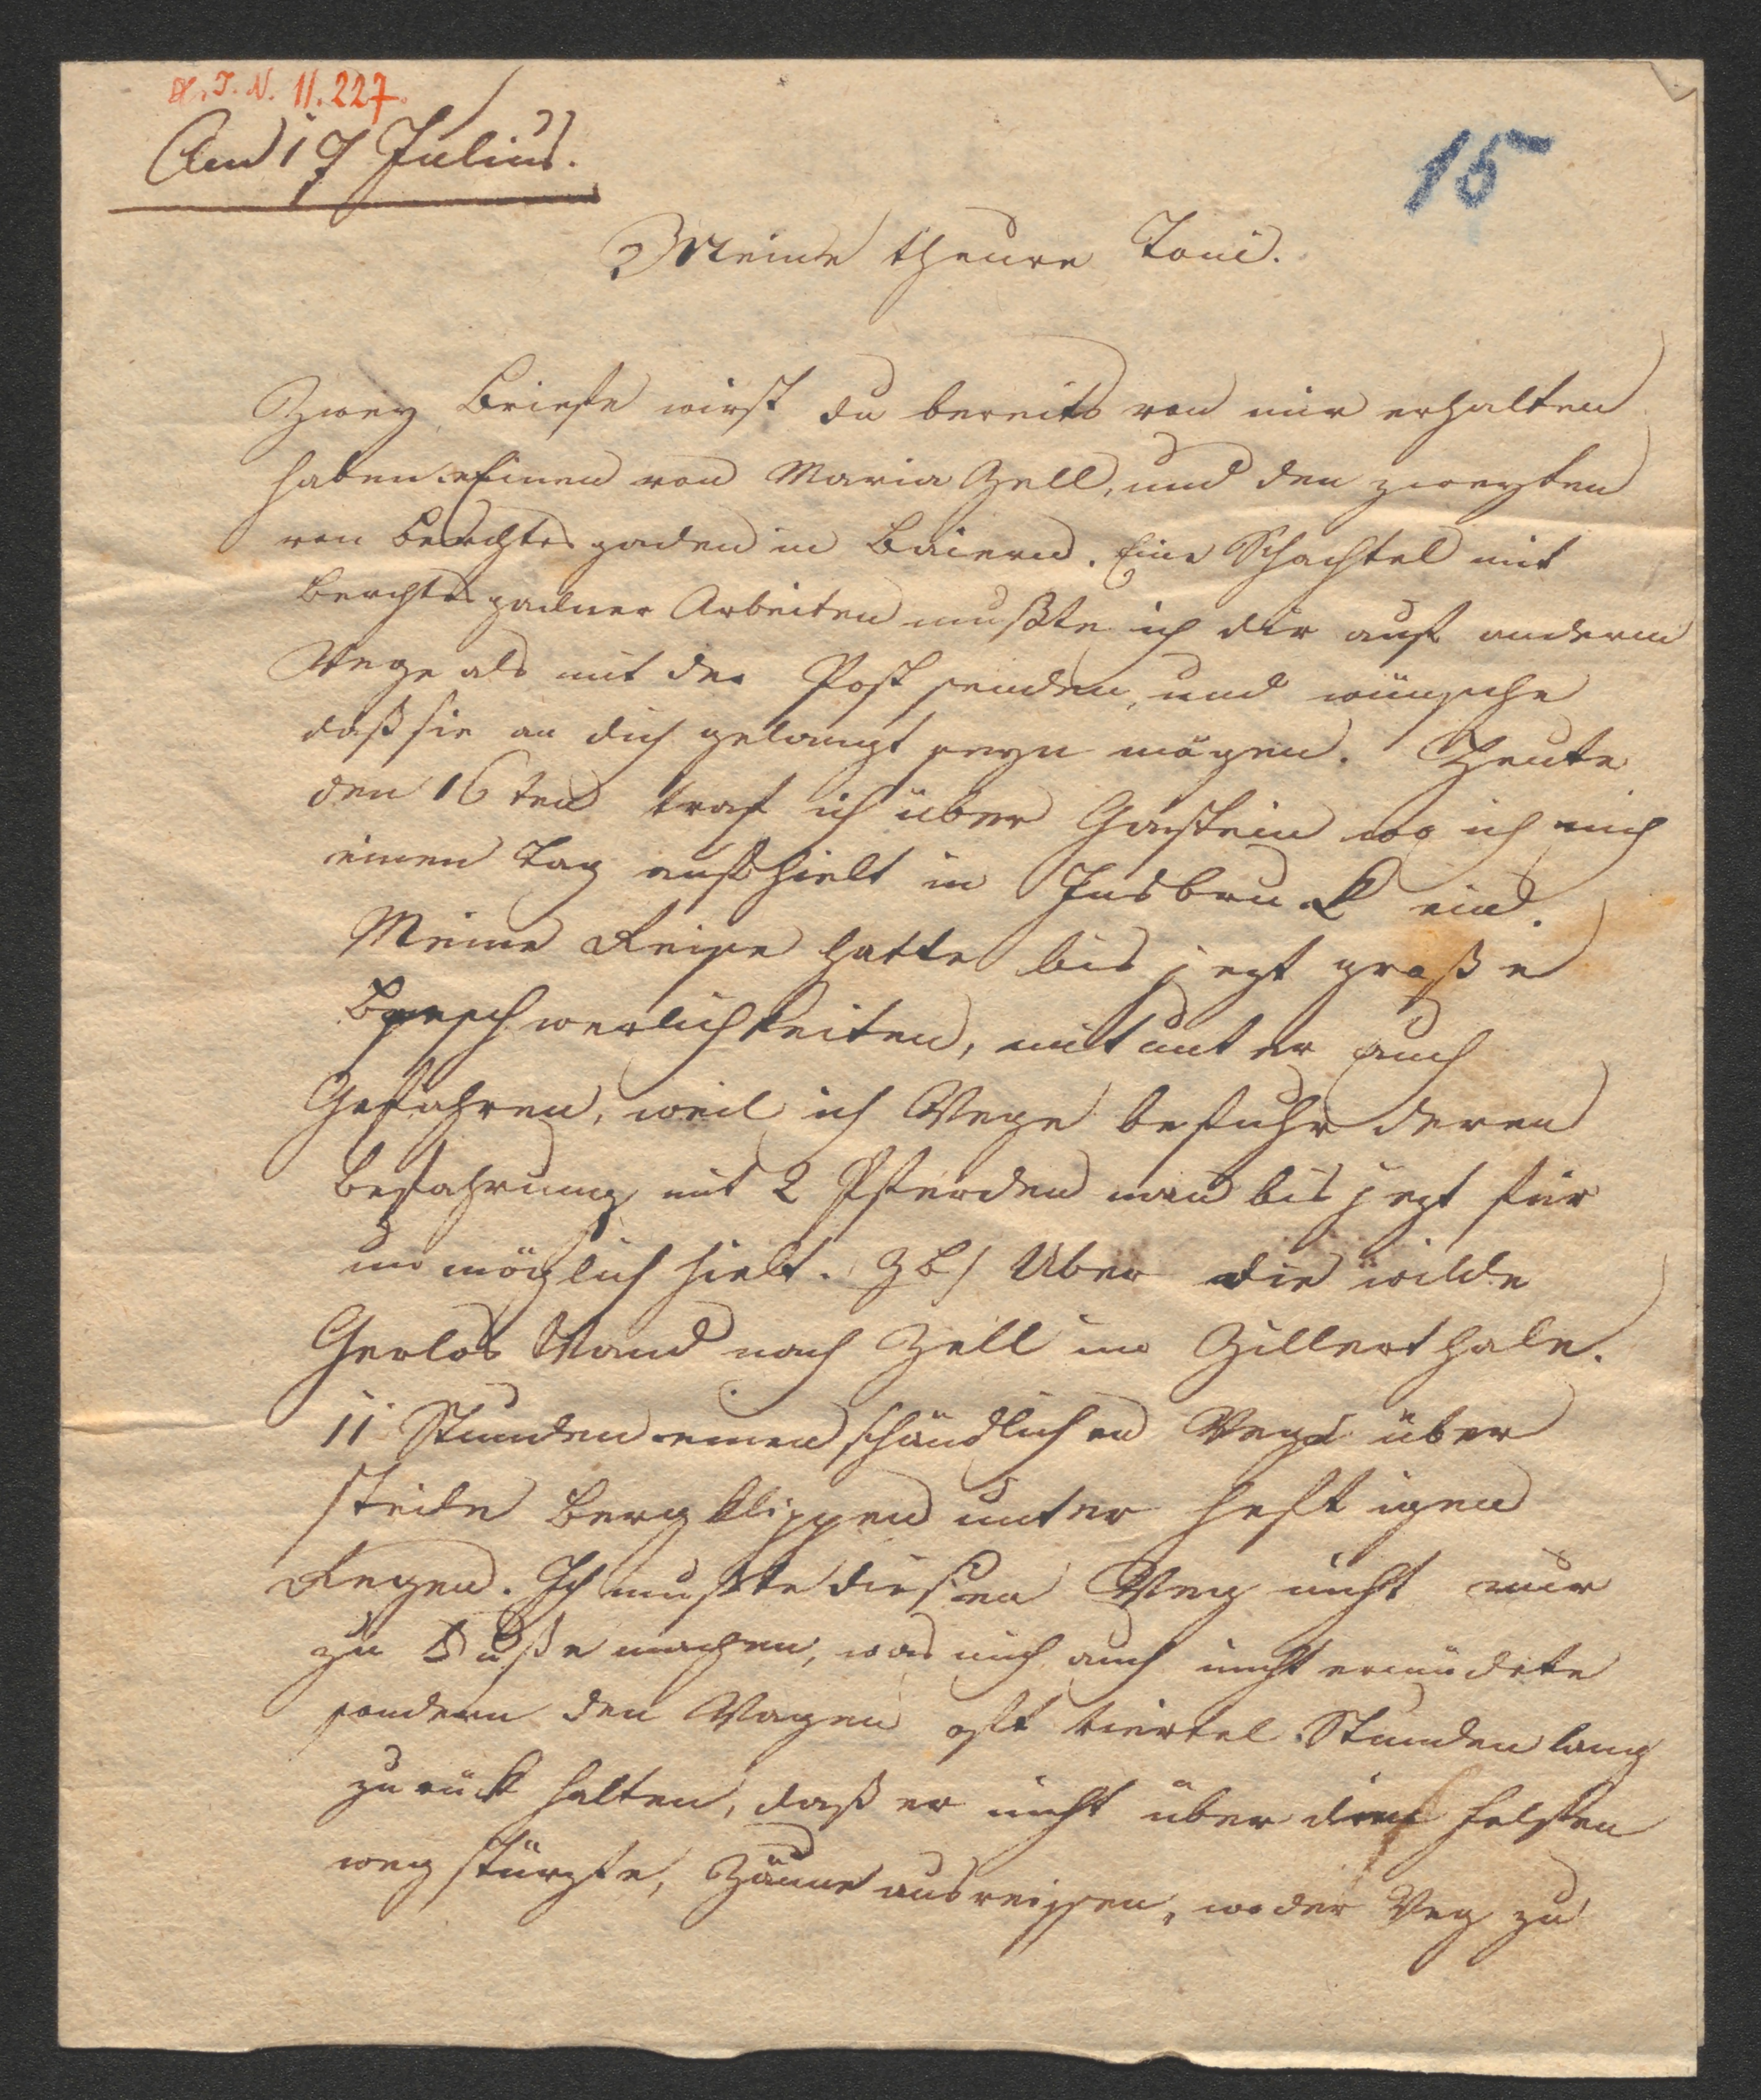 H. I. N. 11.227.
Am 17 Julius.
15
Meine theure Toni.
Zwey Briefe wirst du bereits von mir erhalten
haben. Einen von Maria Zell, und den zweyten
von Berchtesgaden in Baiern. Eine Schachtel mit
Berchtesgadner Arbeiten mußte ich dir auf anderm
Wege als mit der Post senden, und wünsche
daß sie an dich gelangt seyn mögen. Heute
den 16ten traf ich über Gastein wo ich mich
einen Tag aufhielt in Insbruck ein.
Meine Reise hatte bis jezt große
Beschwerlichkeiten, mitunter auch
Gefahren, weil ich Wege befuhr deren
Befahrung mit 2 Pferden man bis jezt für
unmöglich hielt. ZB/ Über die wilde
Gerlos Wand nach Zell im Zillerthale.
11 Stunden einen schändlichen Weg über
steile Bergklippen unter heftigen
Regen. Ich mußte diesen Weg nicht nur
zu Fuße machen, was mich auch nicht ermüdete
sondern den Wagen oft viertel Stunden lang
zurück halten, daß er nicht über die Felsen
weg stürzte, Zäune ausreissen, wo der Weg zu